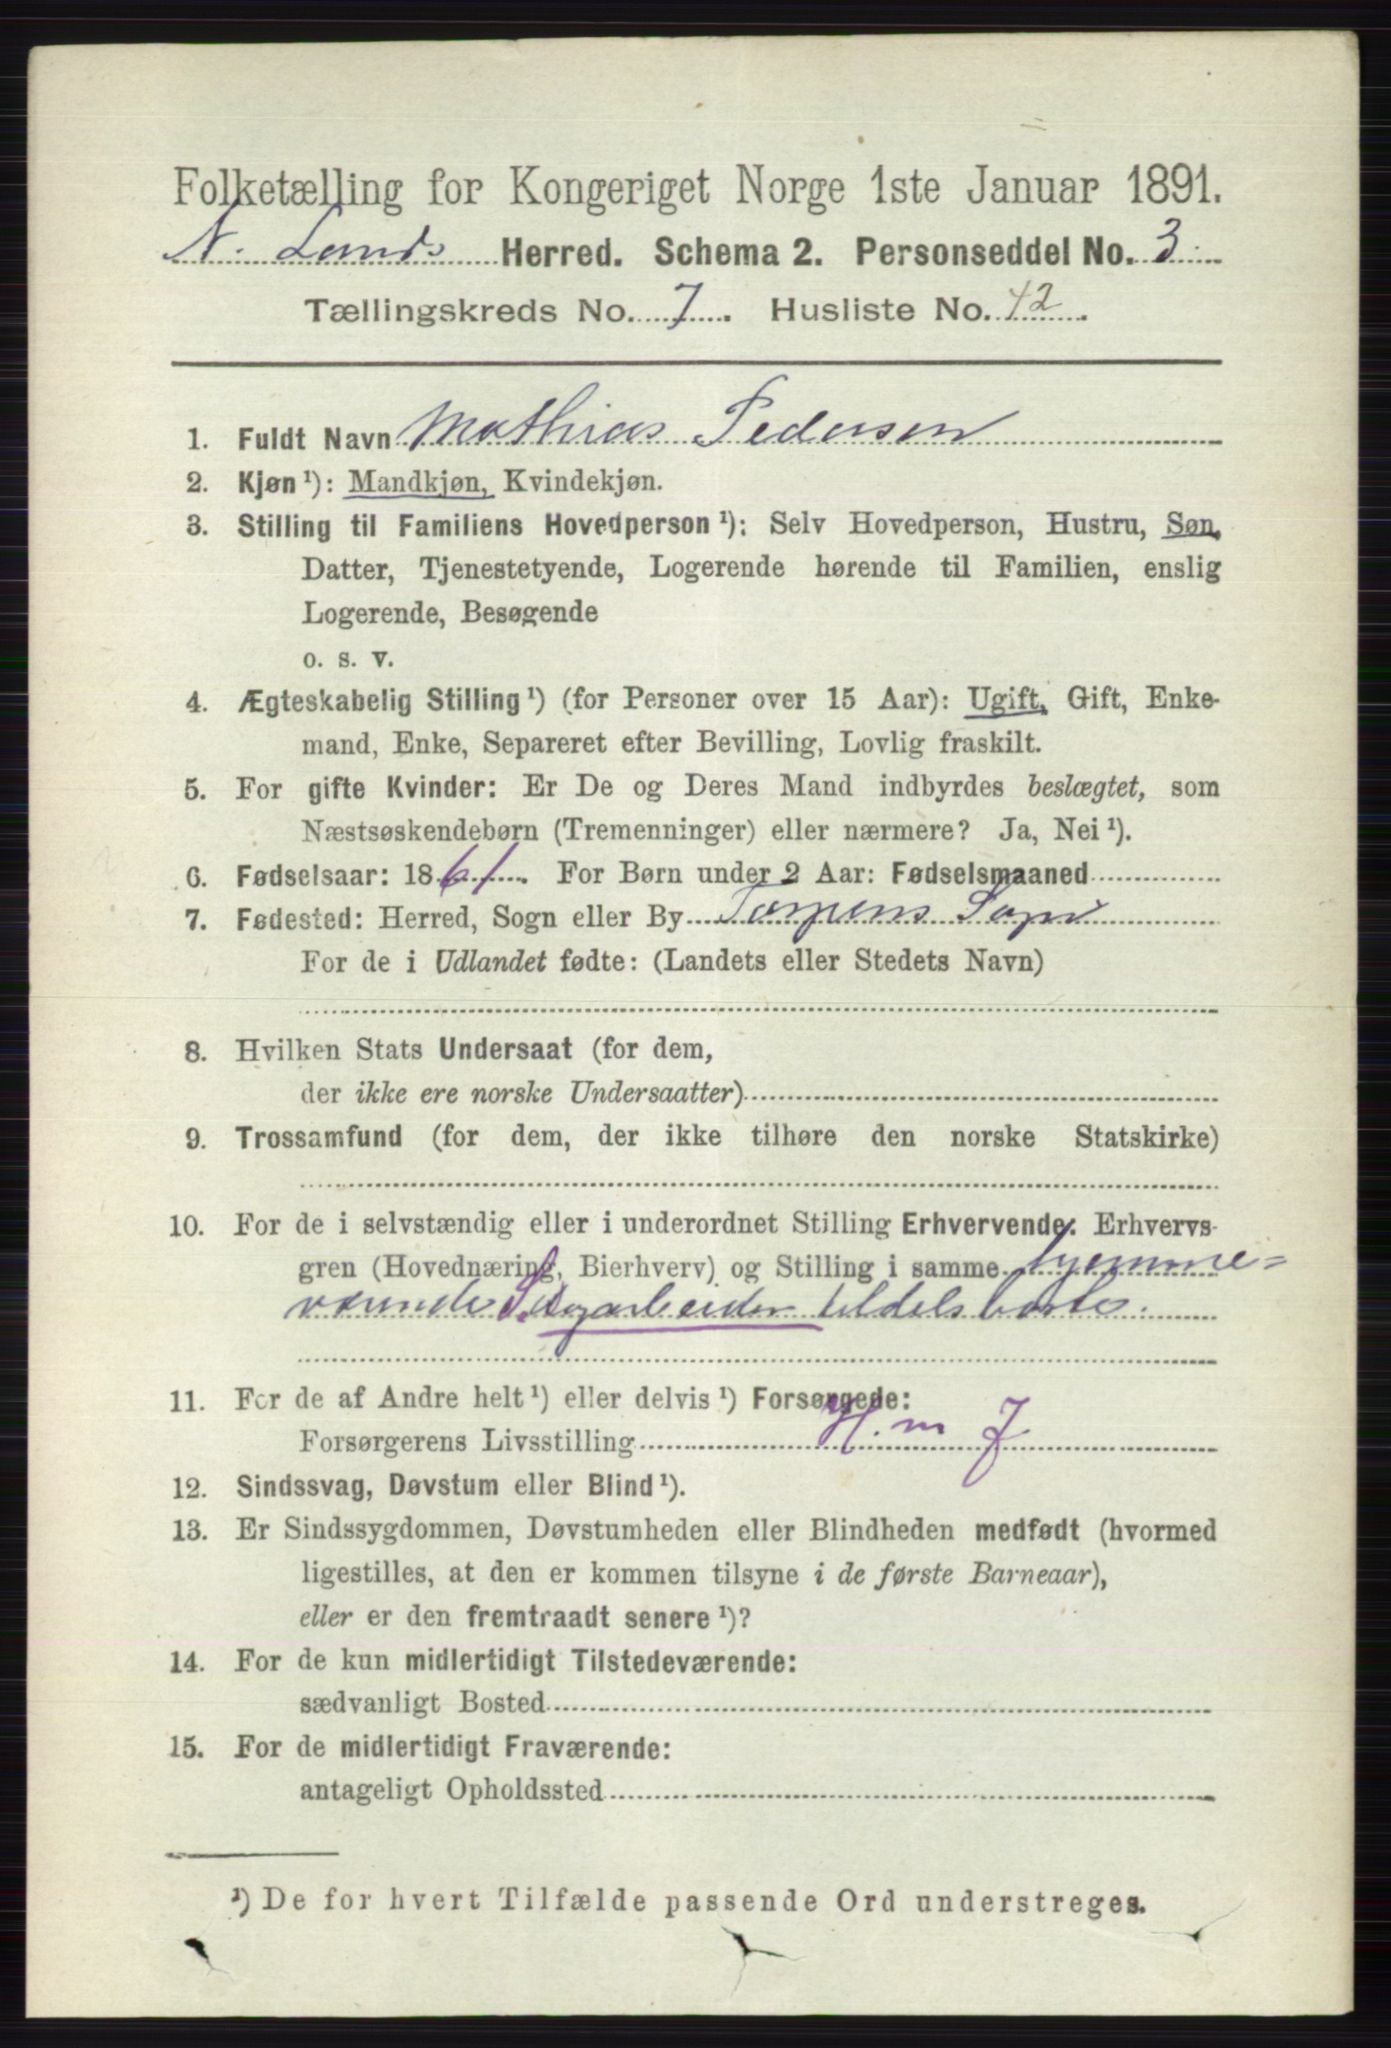 Folketælling for Kongeriget Norge 1ste Januar 1891.
N. Lands Herred. Schema 2. Personseddel No. 3.
Tællingskreds No. 7. Husliste No. 42.
1. Fuldt Navn Mathias Pedersen
2. Kjøn ¹): Mandkjøn, Kvindekjøn.
3. Stilling til Familiens Hovedperson ¹): Selv Hovedperson, Hustru, Søn,
Datter, Tjenestetyende, Logerende hørende til Familien, enslig
Logerende, Besøgende
o. s. v.
4. Ægteskabelig Stilling ¹) (for Personer over 15 Aar): Ugift, Gift, Enke-
mand, Enke, Separeret efter Bevilling, Lovlig fraskilt.
5. For gifte Kvinder: Er De og Deres Mand indbyrdes beslægtet, som
Næstsøskendebørn (Tremenninger) eller nærmere? Ja, Nei ¹).
6. Fødselsaar: 1861. For Børn under 2 Aar: Fødselsmaaned
7. Fødested: Herred, Sogn eller By Torpens Sogn
For de i Udlandet fødte: (Landets eller Stedets Navn)
8. Hvilken Stats Undersaat (for dem,
der ikke ere norske Undersaatter)
9. Trossamfund (for dem, der ikke tilhøre den norske Statskirke)
10. For de i selvstændig eller i underordnet Stilling Erhvervende: Erhvervs-
gren (Hovednæring, Bierhverv) og Stilling i samme hjemme-
værende Skogarbeider tildels borte.
11. For de af Andre helt ¹) eller delvis ¹) Forsørgede:
Forsørgerens Livsstilling H. m J
12. Sindssvag, Døvstum eller Blind ¹).
13. Er Sindssygdommen, Døvstumheden eller Blindheden medfødt (hvormed
ligestilles, at den er kommen tilsyne i de første Barneaar),
eller er den fremtraadt senere ¹)?
14. For de kun midlertidigt Tilstedeværende:
sædvanligt Bosted
15. For de midlertidigt Fraværende:
antageligt Opholdssted
¹) De for hvert Tilfælde passende Ord understreges.